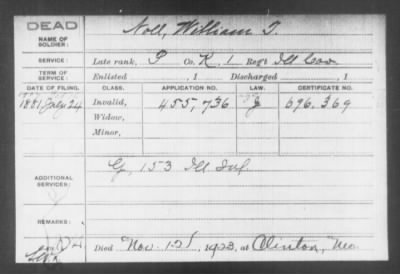 DEAD
NAME OF SOLDIER: Noll, William T.
SERVICE: Late rank, P Co. K. 1 Reg't Ill Cav
TERM OF SERVICE: Enlisted , 1 Discharged , 1
DATE OF FILING. CLASS. APPLICATION NO. LAW. CERTIFICATE NO.
1881 July 24 Invalid, 455,736 696.369
Widow,
Minor,
ADDITIONAL SERVICES: G, 153 Ill Inf.
REMARKS:
Died Nov. 1923, at Clinton, Mo.